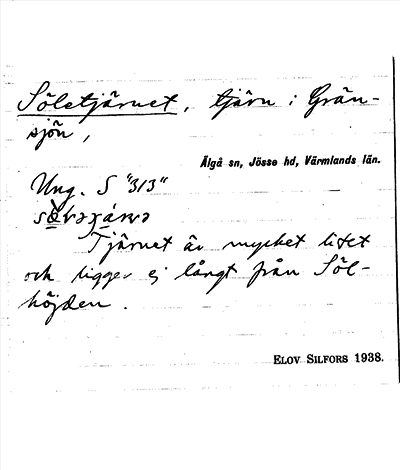 Söletjärnet, tjärn i Grän-
sjön,
Älgå sn, Jösse hd, Värmlands län.
Ung. S "313"
Tjärnet är mycket litet
och ligger ej långt från Söl-
höjden.
ELOV SILFORS 1938.